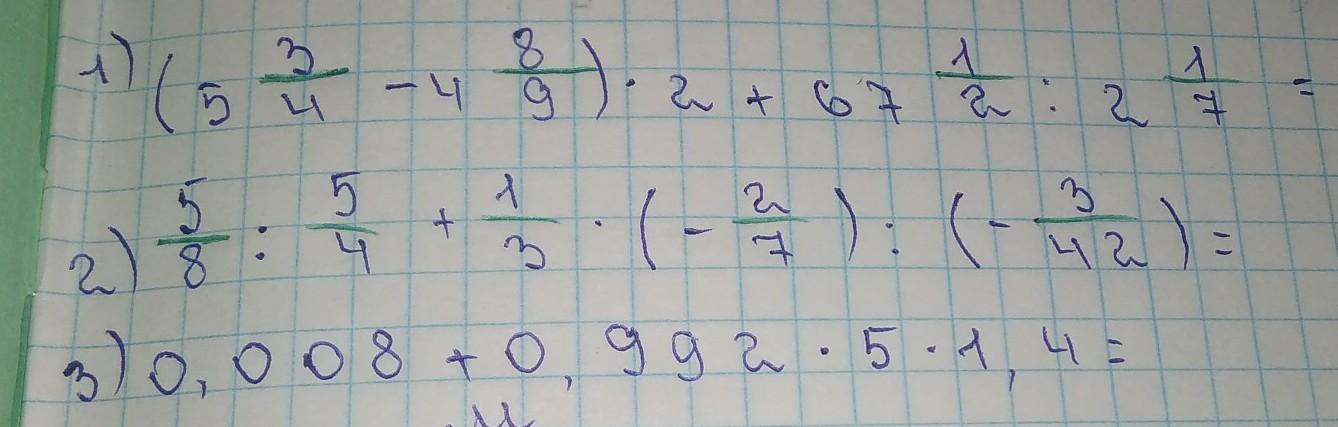 1) (5 3/4 - 4 8/9) · 2 + 67 1/2 : 2 1/7 =
2) 5/8 : 5/4 + 1/3 · (- 2/7) : (- 3/42) =
3) 0,008 + 0,992 · 5 · 1,4 =